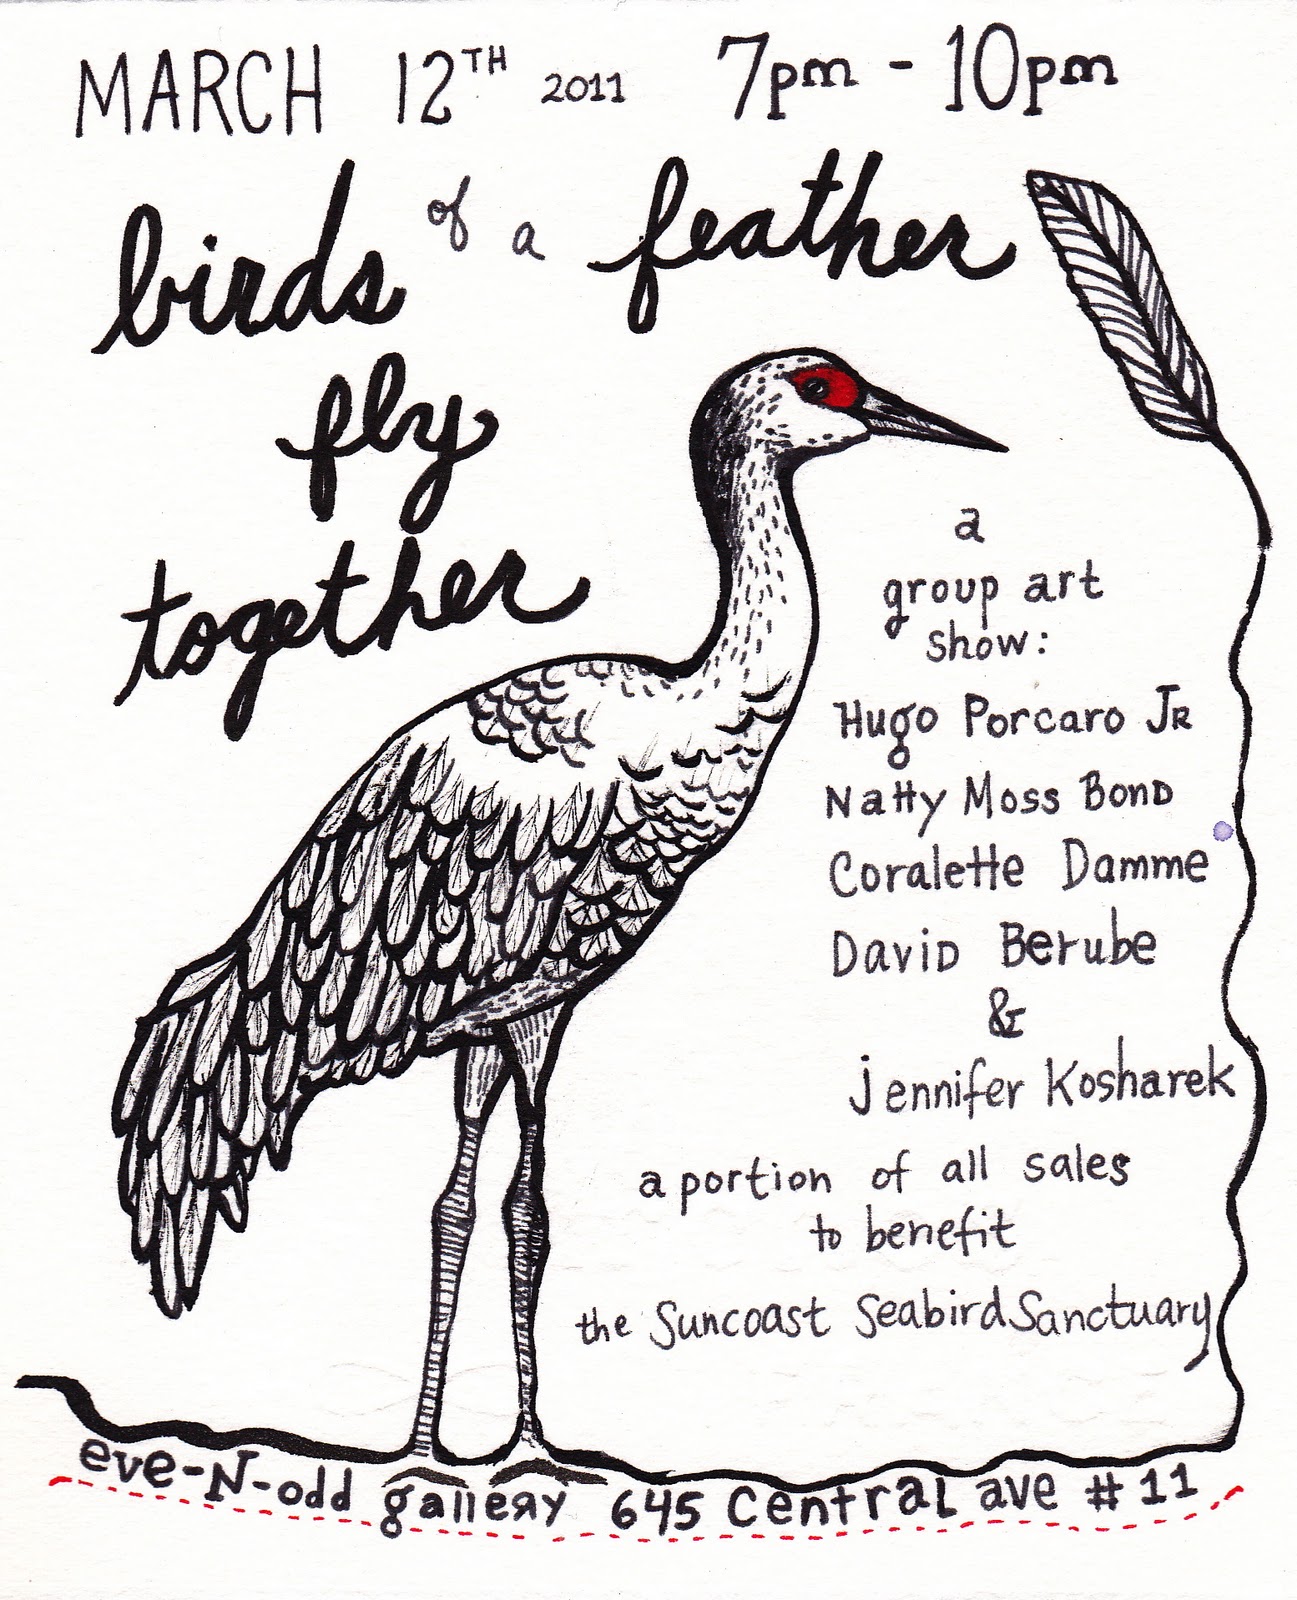 MARCH 12TH 2011 7pm - 10pm
birds of a feather
fly
together
a
group art
show:
Hugo Porcaro JR
Natty Moss Bond
Coralette Damme
David Berube
&
Jennifer Kosharek
a portion of all sales
to benefit
the Suncoast Seabird Sanctuary
eve-N-odd gallery 645 Central ave #11